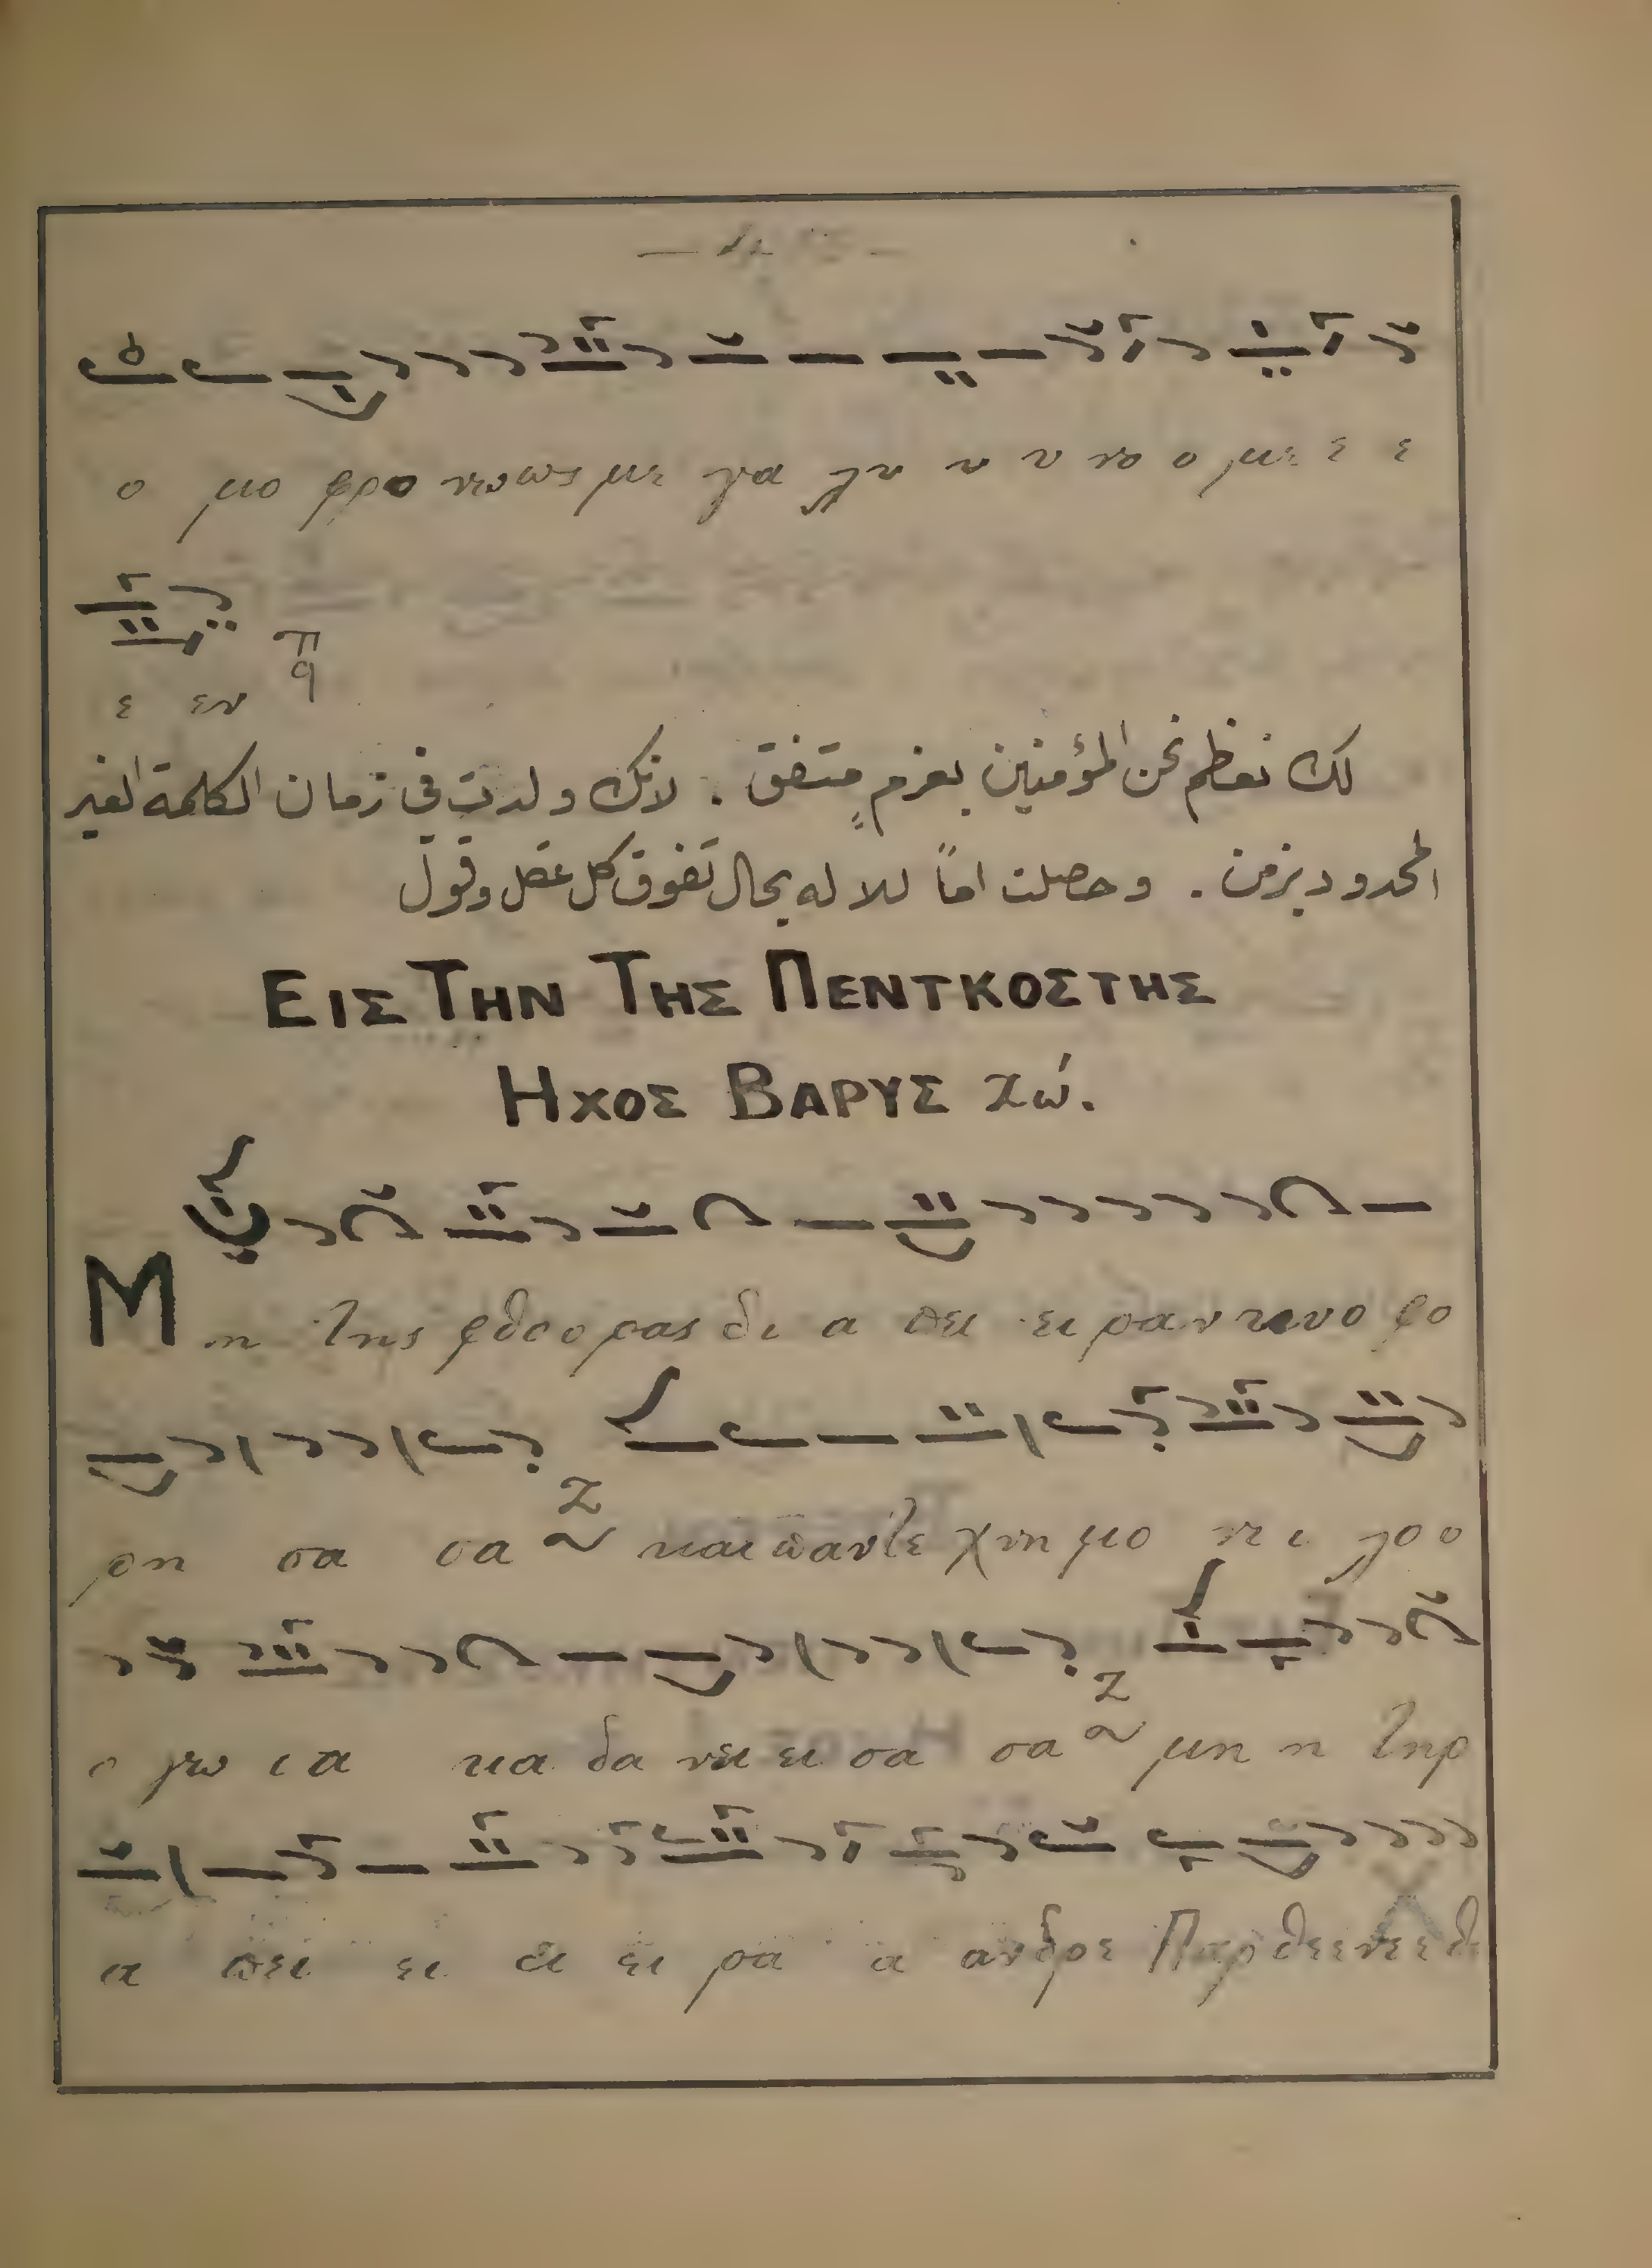 ο μο φρο νωως με γα λυ υ υ νο ο με ε ε
ε εν π q
لك نعظم نحن المؤمنين بعزمٍ متفق . لانك ولدت في زمان الكلمة الغير
المحدود بزمن . وحصلت اماً للاله بحال تفوق كل عقل وقول
ΕΙΣ ΤΗΝ ΤΗΣ ΠΕΝΤΚΟΣΤΗΣ
ΗΧΟΣ ΒΑΡΥΣ Ζώ.
Μ η της φθο ο ρας δι α πει ει ραν κυο φο
ρη σα σα Ζ και παντε χνη μο νι ι λο ο
ο γω ι α κα δα νει ει σα σα Ζ μη η τηρ
α πει ει ει ει ρα α ανδρε Παρθεενεε θ